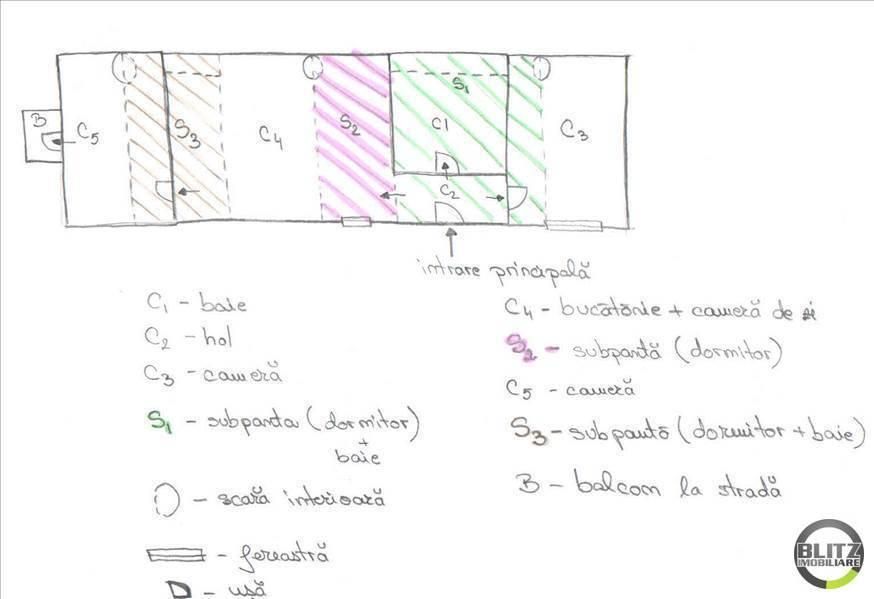 B
C5
S3
C4
S2
S1
C1
C2
C3
intrare principală
C1 - baie
C2 - hol
C3 - cameră
S1 - subpanta (dormitor)
+
baie
- scară interioară
- fereastră
- ușă
C4 - bucătărie + cameră de zi
S2 - subpantă (dormitor)
C5 - cameră
S3 - subpantă (dormitor + baie)
B - balcon la stradă
BLITZ
IMOBILIARE